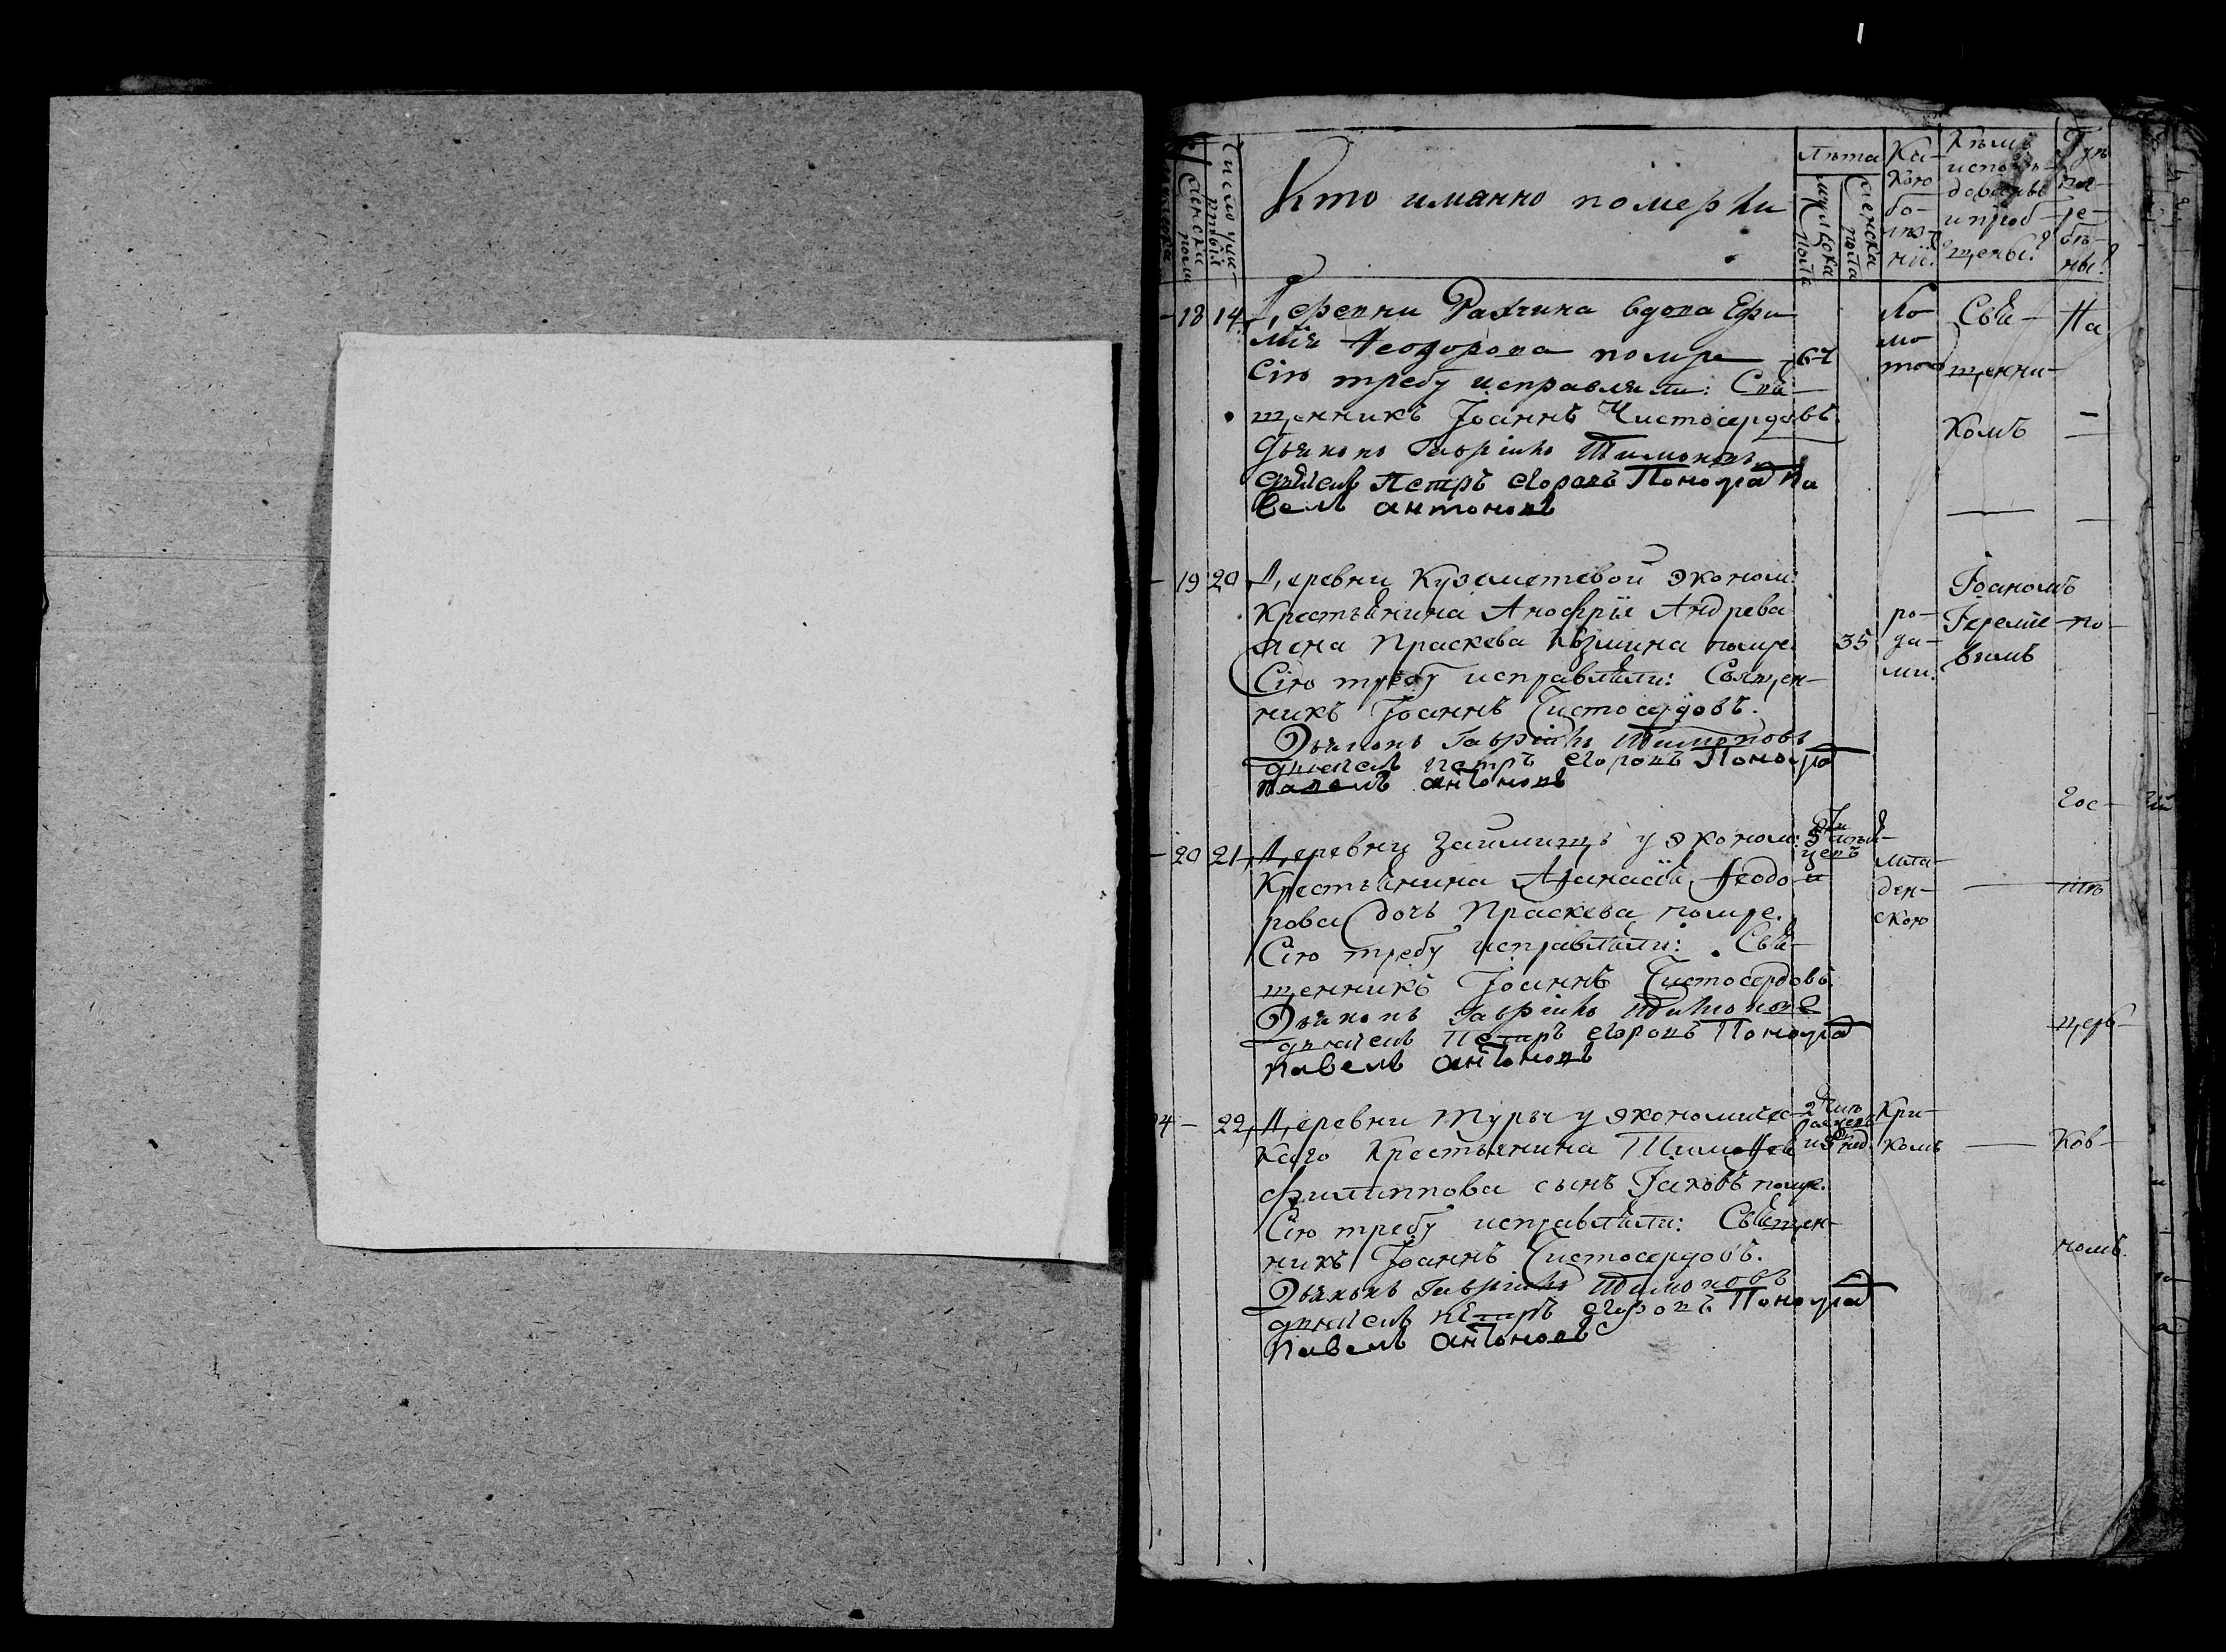 Число умерт­вiй
Женска пола
Кто имянно померли
Лѣта
мужеска пола
Женска пола
Ка-
кою
бо-
лѣз-
нїю?
Кѣмъ
исповѣ-
дованы
и приоб-
щены?
Гдѣ
по-
гре-
бе-
ны?
18 14 Деревни вдова Ефи-
мїя Ѳеодорова помре 67
Сїю требу исправляли: Свя-
щенникъ Iоаннъ Чистосердовъ.
Дьяконъ Гаврїилъ Тимоновъ
дьячекъ Петръ Егоровъ Пономарь Па
велъ антоновъ
Ло
мо
тою
Свя-
щенни-
комъ
На
19 20 Деревни Куземетевой эконом:
Крестьянина Анофрїя Андрева
жена Праскева Козмина помре 35
Сїю требу исправляли: Священ-
никъ Iоаннъ Чистосердовъ.
Дьяконъ Гаврїилъ Тимоновъ
дьячекъ Петръ Егоровъ Пономарь
павелъ антоновъ
ро-
да-
ми.
Iоаномъ
Iеремїе-
вымъ
по-
гос-
20 21 Деревни Займищъ у эконом:
Крестьянина Аѳанасїя Ѳеодо-
рова дочь Праскева помре.
Сїю требу исправляли: Свя-
щенникъ Iоаннъ Чистосердовъ.
Дьяконъ Гаврїилъ Тимоновъ
дьячекъ Петръ Егоровъ Пономарь
павелъ антоновъ
мла-
ден-
скою
тѣ
церь-
4 22 Деревни Туры у экономичес-
каго Крестьянина Тимоѳея
филиппова сынъ Iаковъ помре.
Сїю требу исправляли: Священ-
никъ Iоаннъ Чистосердовъ.
Дьяконъ Гаврїилъ Тимоновъ
дьячекъ петръ Егоровъ Пономарь
павелъ антоновъ
Кри-
комъ
ков-
номъ.